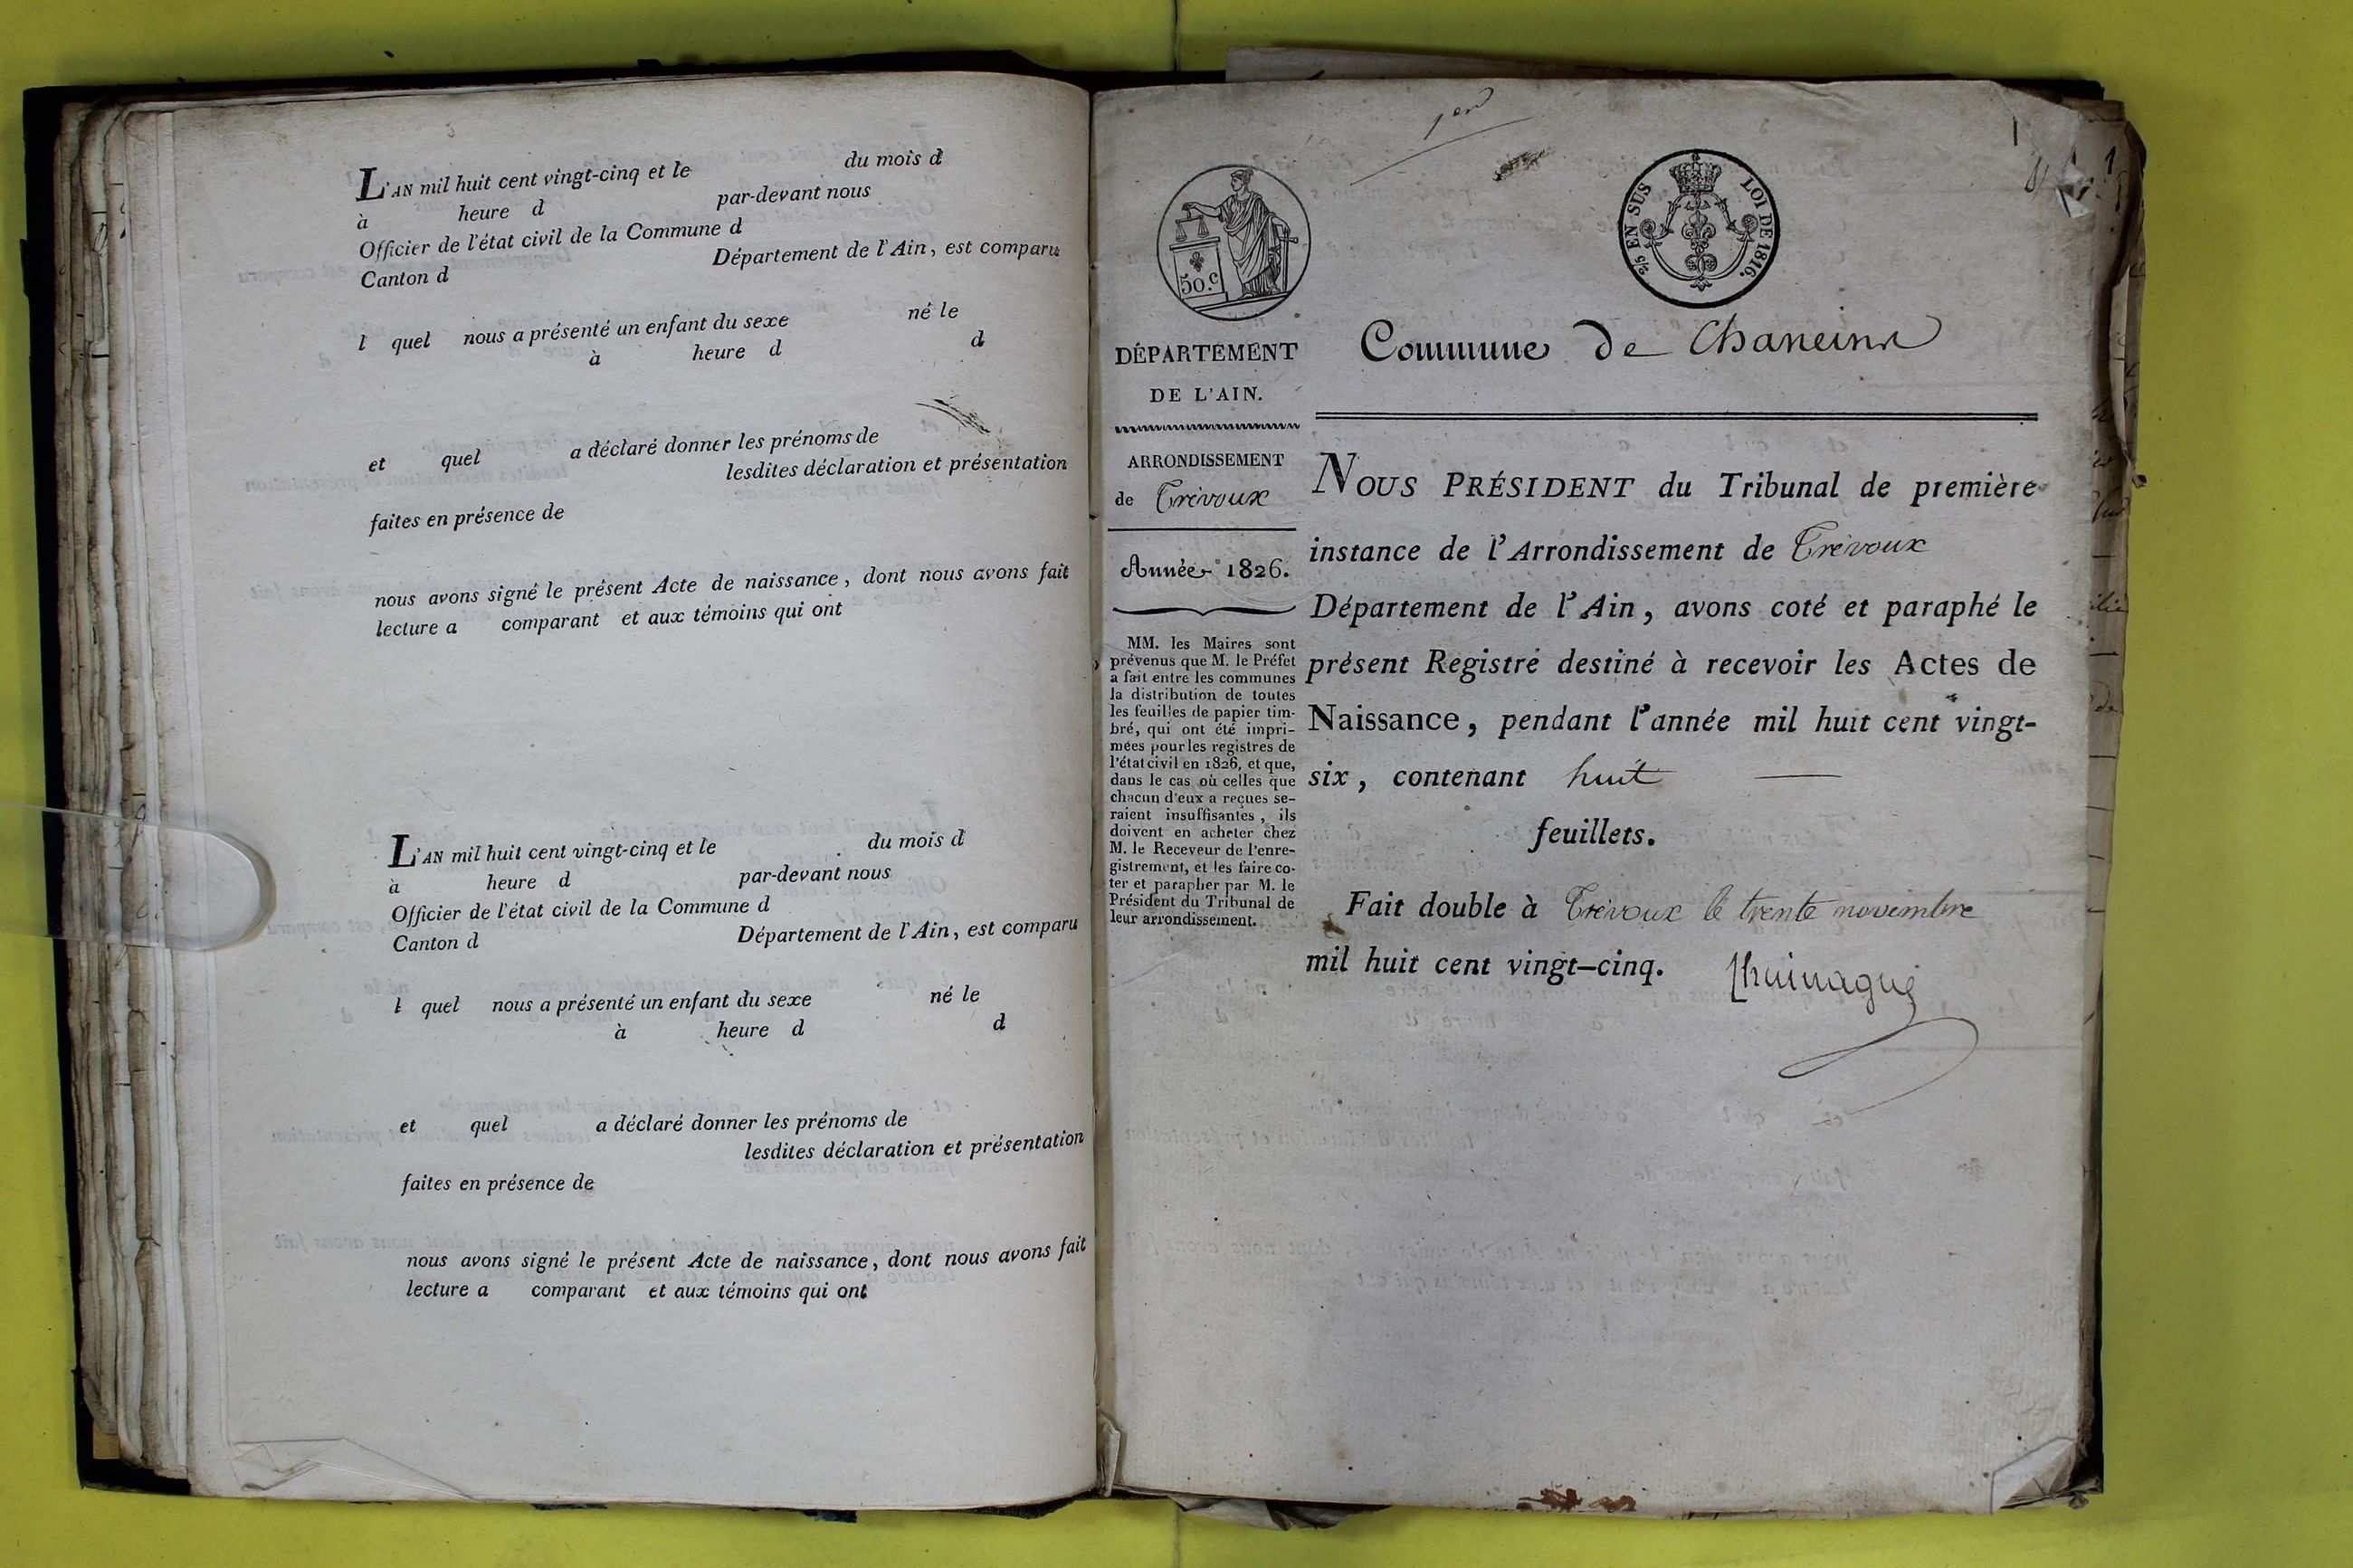 L'AN mil huit cent vingt-cinq et le du mois d
à heure d par-devant nous
Officier de l'état civil de la Commune d
Canton d Département de l'Ain, est comparu
l quel nous a présenté un enfant du sexe né le
à heure d d
et quel a déclaré donner les prénoms de
lesdites déclaration et présentation
faites en présence de
nous avons signé le présent Acte de naissance, dont nous avons fait
lecture a comparant et aux témoins qui ont
L'AN mil huit cent vingt-cinq et le du mois d
à heure d par-devant nous
Officier de l'état civil de la Commune d
Canton d Département de l'Ain, est comparu
l quel nous a présenté un enfant du sexe né le
à heure d d
et quel a déclaré donner les prénoms de
lesdites déclaration et présentation
faites en présence de
nous avons signé le présent Acte de naissance, dont nous avons fait
lecture a comparant et aux témoins qui ont
1er
50.c
5/2 EN SUS LOI DE 1816.
DÉPARTEMENT
DE L'AIN.
ARRONDISSEMENT
de Trévoux
Année 1826.
MM. les Maires sont
prévenus que M. le Préfet
a fait entre les communes
la distribution de toutes
les feuilles de papier tim-
bré, qui ont été impri-
mées pour les registres de
l'état civil en 1826, et que,
dans le cas où celles que
chacun d'eux a reçues se-
raient insuffisantes, ils
doivent en acheter chez
M. le Receveur de l'enre-
gistrement, et les faire co-
ter et parapher par M. le
Président du Tribunal de
leur arrondissement.
Commune de Chaneins
NOUS PRÉSIDENT du Tribunal de première
instance de l'Arrondissement de Trévoux
Département de l'Ain, avons coté et paraphé le
présent Registre destiné à recevoir les Actes de
Naissance, pendant l'année mil huit cent vingt-
six, contenant huit
feuillets.
Fait double à Trévoux le trente novembre
mil huit cent vingt-cinq.